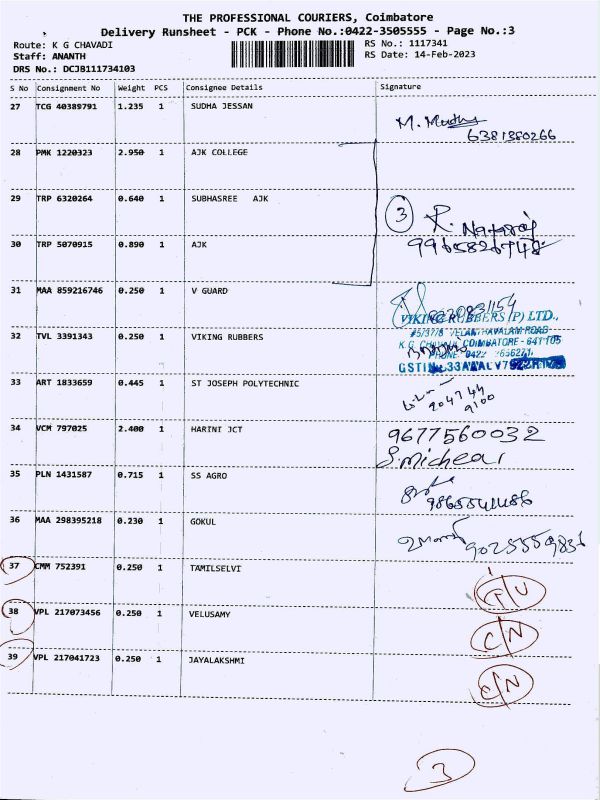 THE PROFESSIONAL COURIERS, Coimbatore
Delivery Runsheet - PCK - Phone No.:0422-3505555 - Page No.:3
Route: K G CHAVADI
RS No.: 1117341
Staff: ANANTH
RS Date: 14-Feb-2023
DRS No.: DCJB111734103
S No Consignment No Weight PCS Consignee Details Signature
27 TCG 40389791 1.235 1 SUDHA JESSAN
6381380266
28 PMK 1220323 2.950 1 AJK COLLEGE
29 TRP 6320264 0.640 1 SUBHASREE AJK
3 R. Nataraj
30 TRP 5070915 0.890 1 AJK
31 MAA 859216746 0.250 1 V GUARD
VIKING RUBBERS (P) LTD.,
32 TVL 3391343 0.250 1 VIKING RUBBERS
COIMBATORE - 641 105
33 ART 1833659 0.445 1 ST JOSEPH POLYTECHNIC
34 VCM 797025 2.400 1 HARINI JCT
9677560032
35 PLN 1431587 0.715 1 SS AGRO
36 MAA 298395218 0.230 1 GOKUL
37 CMM 752391 0.250 1 TAMILSELVI
38 VPL 217073456 0.250 1 VELUSAMY
C/N
39 VPL 217041723 0.250 1 JAYALAKSHMI
C/N
3